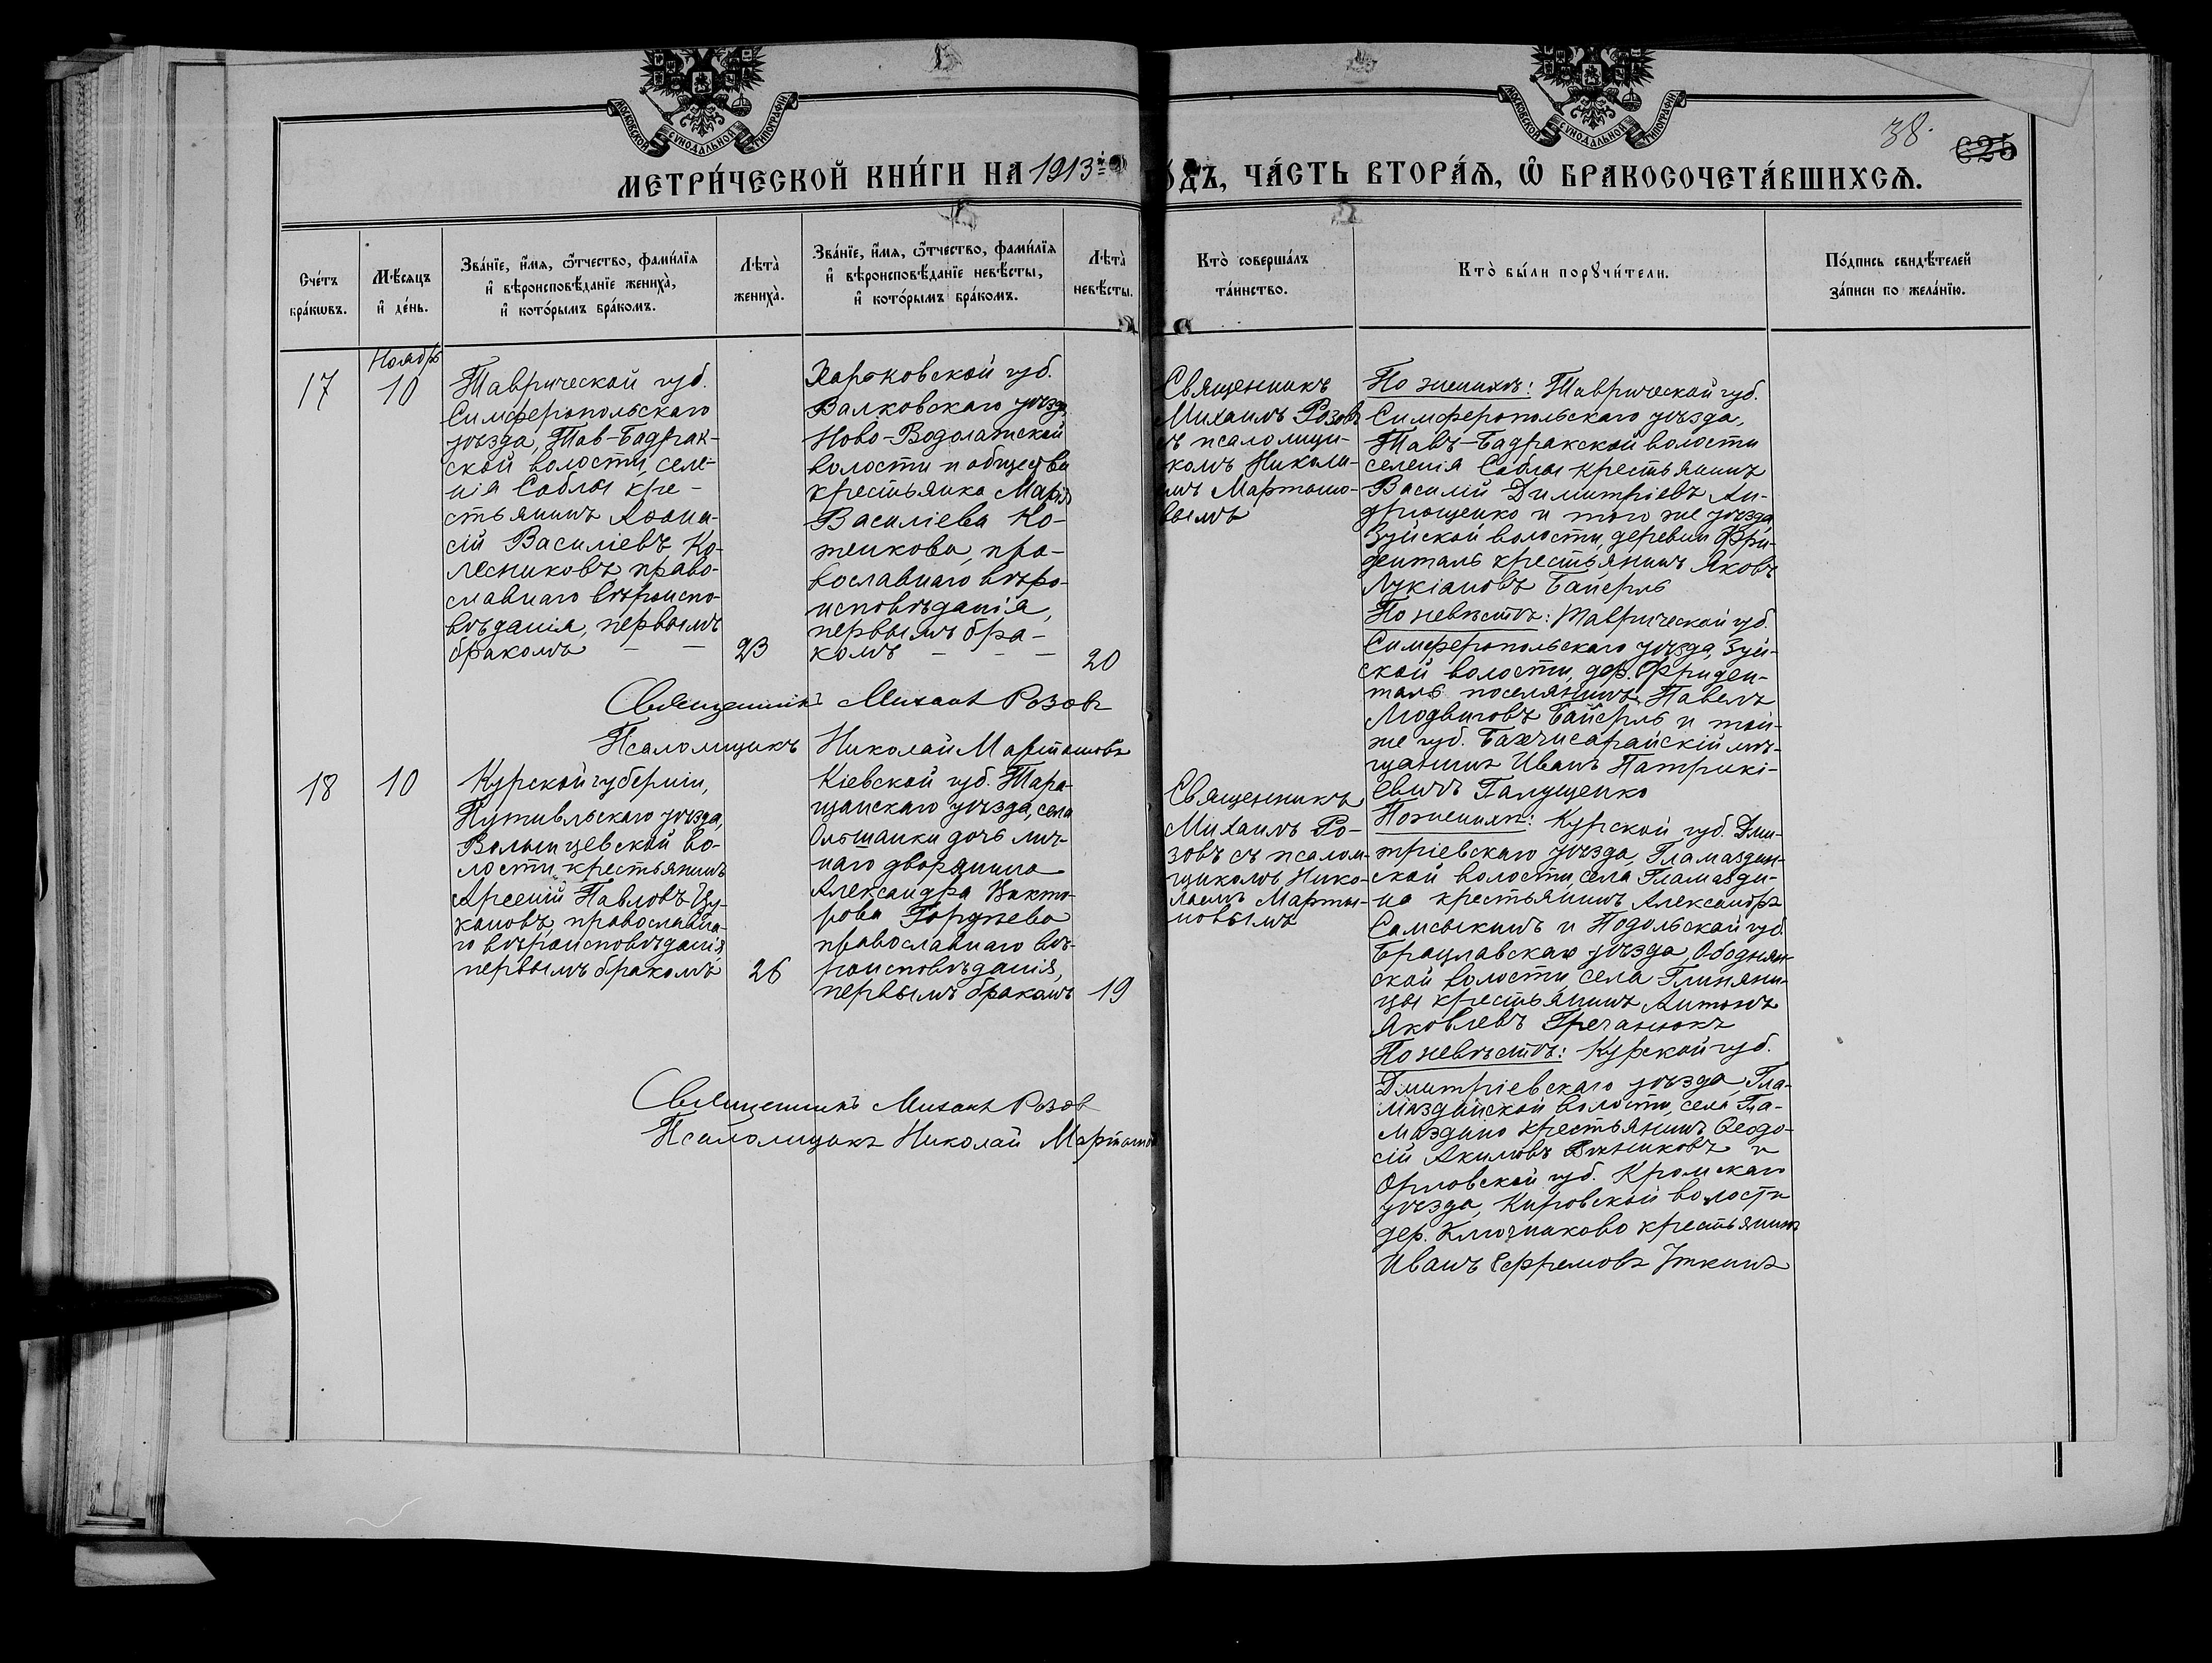 МОСКОВСКОЙ СѴНОДАЛЬНОЙ ТИПОГРАФІИ
МОСКОВСКОЙ СѴНОДАЛЬНОЙ ТИПОГРАФІИ
38.
625
МЕТРИ́ЧЕСКОЙ КНИ́ГИ НА 1913й
ОДЪ, ЧА́СТЬ ВТОРА́Ѧ, Ѽ БРАКОСОЧЕТА́ВШИХСѦ.
Сче́тъ
бра́кѡвъ.
Мѣ́сяцъ
и҆ де́нь.
Зва́нїе, и҆́мя, ѻ҆́тчество, фами́лїя
и҆ вѣроисповѣ́данїе жениха̀,
и҆ кото́рымъ бра́комъ.
Лѣта̀
жениха̀.
Зва́нїе, и҆́мя, ѻ҆́тчество, фами́лїя
и҆ вѣроисповѣ́данїе невѣ́сты,
и҆ кото́рымъ бра́комъ.
Лѣта̀
невѣ́сты.
Кто̀ соверша́лъ
та́инство.
Кто̀ бы́ли порꙋчи́тели.
По́дпись свидѣ́телей
за́писи по жела́нїю.
17
Ноябрь
10
Таврической губ.
Симферопольскаго
уѣзда, Тав-Бадрак-
ской волости, селе-
нія Саблы кре-
стьянинъ Аѳана-
сій Василіевъ Ко-
лесниковъ, право-
славнаго вѣроиспо-
вѣданія, первымъ
бракомъ – –
23
Харьковской губ.
Валковскаго уѣзда
Ново-Водолажской
волости и общества
крестьянка Марія
Василіева Ко-
женкова, пра-
вославнаго вѣро-
исповѣданія,
первымъ бра-
комъ – – –
20
Священникъ Михаилъ Розовъ
Псаломщикъ Николай Мартыновъ
Священникъ
Михаилъ Розовъ
съ псаломщи-
комъ Никола-
емъ Мартыно-
вымъ
По женихѣ: Таврической губ.
Симферопольскаго уѣзда,
Тавъ-Бадракской волости
селенія Саблы крестьянинъ
Василій Димитріевъ Ан-
дрющенко и того же уѣзда
Зуйской волости, деревни Фри-
денталь крестьянинъ Яковъ
Лукіановъ Байерль
По невѣстѣ: Таврической губ.
Симферопольскаго уѣзда, Зуй-
ской волости, дер. Фриден-
таль поселянинъ Павелъ
Людвиговъ Байерль и той-
же губ. Бахчисарайскій мѣ-
щанинъ Иванъ Патрикі-
евичъ Галущенко
18
10
Курской губерніи,
Путивльскаго уѣзда,
Волынцевской во-
лости, крестьянинъ
Арсеній Павловъ Цу-
кановъ, православна-
го вѣроисповѣданія
первымъ бракомъ
26
Кіевской губ. Тара-
щанскаго уѣзда, села
Ольшанки дочь лич-
наго дворянина
Александра Викто-
рова Гордѣева
православнаго вѣ-
роисповѣданія,
первымъ бракомъ
19
Священникъ Михаилъ Розовъ
Псаломщикъ Николай Мартынов
Священникъ
Михаилъ Ро-
зовъ съ псалом-
щикомъ Нико-
лаемъ Марты-
новымъ
По женихѣ: Курской губ. Дми-
тріевскаго уѣзда, Гламаздин-
ской волости, села Гламазди-
на крестьянинъ Александръ
Самсыкинъ и Подольской губ.
Брацлавскаго уѣзда, Ободнян-
ской волости, села Глиняни-
цы крестьянинъ Антонъ
Яковлевъ Гречанюкъ
По невѣстѣ: Курской губ.
Дмитріевскаго уѣзда, Гла-
маздинской волости, села Гла-
маздино крестьянинъ Ѳеодо-
сій Акимовъ и
Орловской губ. Кромскаго
уѣзда, Кировской волости
дер. Ключиково крестьянинъ
Иванъ Ефремовъ Уткинъ